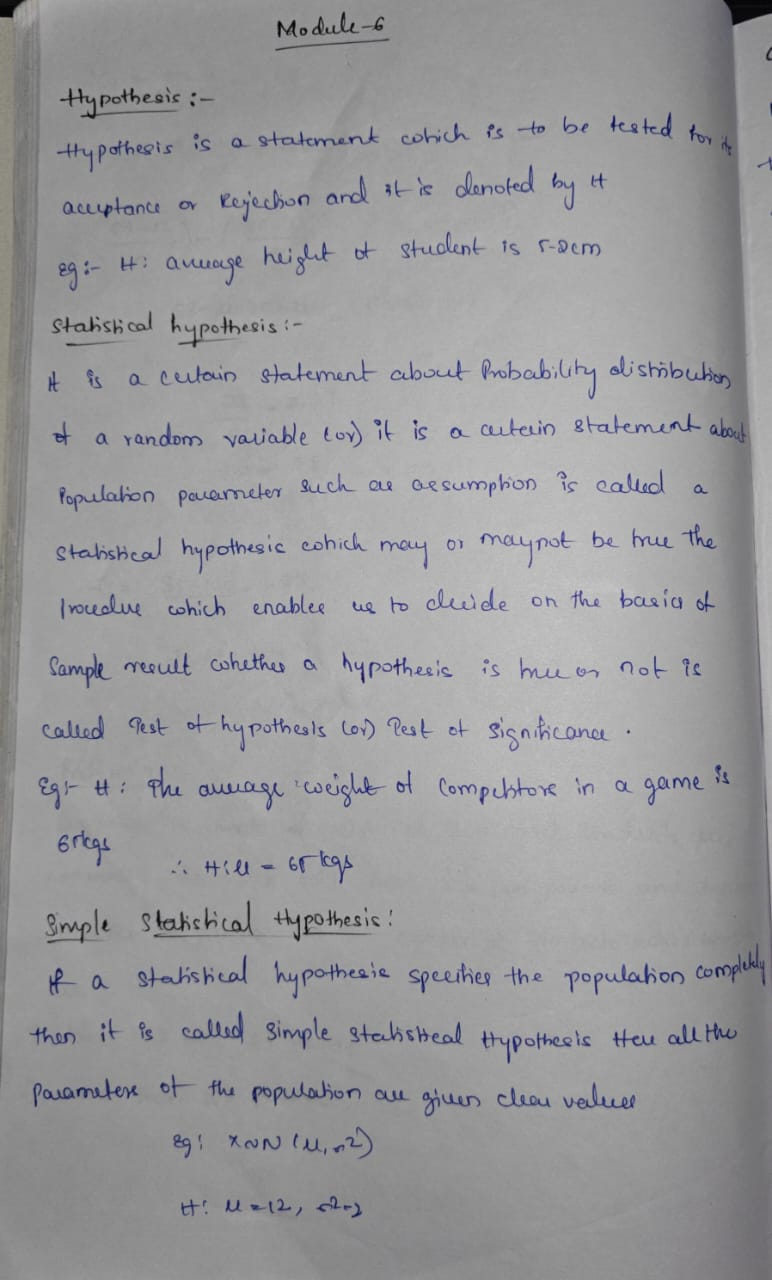 Module-6
Hypothesis :-
Hypothesis is a statement which is to be tested for its
acceptance or Rejection and it is denoted by H
eg :- H: average height of student is 5.2cm
Statistical hypothesis :-
It is a certain statement about Probability distribution
of a random variable (or) it is a certain statement about
Population parameter such as assumption is called a
Statistical hypothesis which may or maynot be true the
Procedue which enables us to decide on the basics of
Sample result whether a hypothesis is true or not is
called Test of hypothesis (or) Test of significance .
Eg:- H: The average weight of Competitors in a game is
65kgs
∴ H: μ = 65 kgs
Simple Statistical Hypothesis:
If a statistical hypothesis specifies the population completely
then it is called Simple Statistical Hypothesis Here all the
Parameters of the population are given clear values
Eg: X~N (μ, σ²)
H: μ = 12,